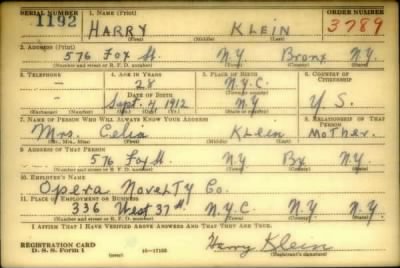 SERIAL NUMBER 1. NAME (Print) ORDER NUMBER
1192 HARRY KLEIN 3789
(First) (Middle) (Last)
2. ADDRESS (Print)
576 Fox St. N.Y. Bronx N.Y.
(Number and street or R. F. D. number) (Town) (County) (State)
3. TELEPHONE 4. AGE IN YEARS 5. PLACE OF BIRTH 6. COUNTRY OF CITIZENSHIP
— 28 N.Y.C.
DATE OF BIRTH (Town or county)
— Sept. 4, 1912 N.Y. U.S.
(Exchange) (Number) (Mo.) (Day) (Yr.) (State or country)
7. NAME OF PERSON WHO WILL ALWAYS KNOW YOUR ADDRESS 8. RELATIONSHIP OF THAT PERSON
Mrs. Celia Klein Mother.
(Mr., Mrs., Miss) (First) (Middle) (Last)
9. ADDRESS OF THAT PERSON
576 Fox St. N.Y. Bx N.Y.
(Number and street or R. F. D. number) (Town) (County) (State)
10. EMPLOYER'S NAME
Opera Novelty Co.
11. PLACE OF EMPLOYMENT OR BUSINESS
336 West 37th N.Y.C. N.Y. N.Y.
(Number and street or R. F. D. number) (Town) (County) (State)
I AFFIRM THAT I HAVE VERIFIED ABOVE ANSWERS AND THAT THEY ARE TRUE.
REGISTRATION CARD
D. S. S. Form 1 Harry Klein
(Registrant's signature)